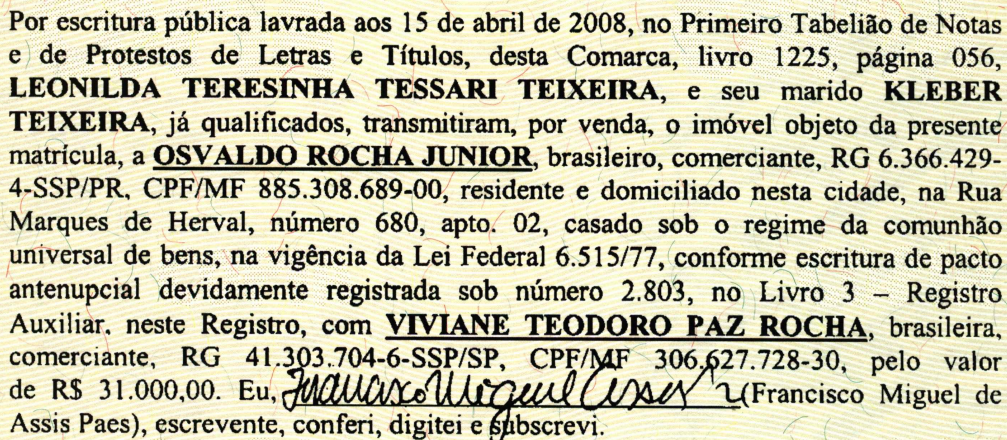 Por escritura pública lavrada aos 15 de abril de 2008, no Primeiro Tabelião de Notas
e de Protestos de Letras e Títulos, desta Comarca, livro 1225, página 056,
LEONILDA TERESINHA TESSARI TEIXEIRA, e seu marido KLEBER
TEIXEIRA, já qualificados, transmitiram, por venda, o imóvel objeto da presente
matrícula, a OSVALDO ROCHA JUNIOR, brasileiro, comerciante, RG 6.366.429-
4-SSP/PR, CPF/MF 885.308.689-00, residente e domiciliado nesta cidade, na Rua
Marques de Herval, número 680, apto. 02, casado sob o regime da comunhão
universal de bens, na vigência da Lei Federal 6.515/77, conforme escritura de pacto
antenupcial devidamente registrada sob número 2.803, no Livro 3 – Registro
Auxiliar, neste Registro, com VIVIANE TEODORO PAZ ROCHA, brasileira,
comerciante, RG 41.303.704-6-SSP/SP, CPF/MF 306.627.728-30, pelo valor
de R$ 31.000,00. Eu, (Francisco Miguel de
Assis Paes), escrevente, conferi, digitei e subscrevi.